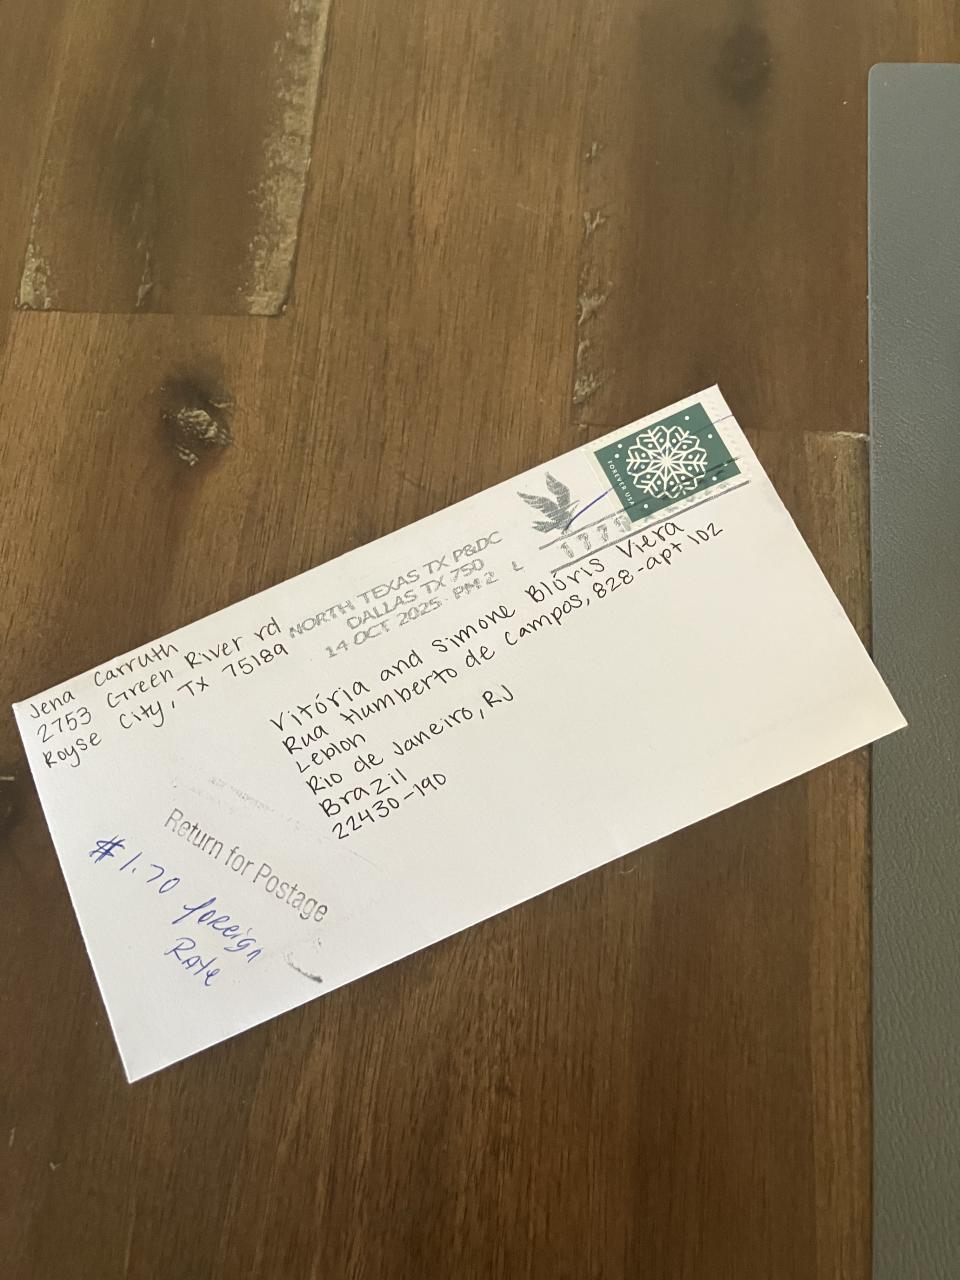 Jena Carruth
2753 Green River rd
Royse City, TX 75189
NORTH TEXAS TX P&DC
DALLAS TX 750
14 OCT 2025 PM 2 L
FOREVER USA
Vitória and Simone Blóris Viera
Rua Humberto de Campos, 828-apt 102
Leblon
Rio de Janeiro, RJ
Brazil
22430-190
Return for Postage
$1.70 foreign
Rate